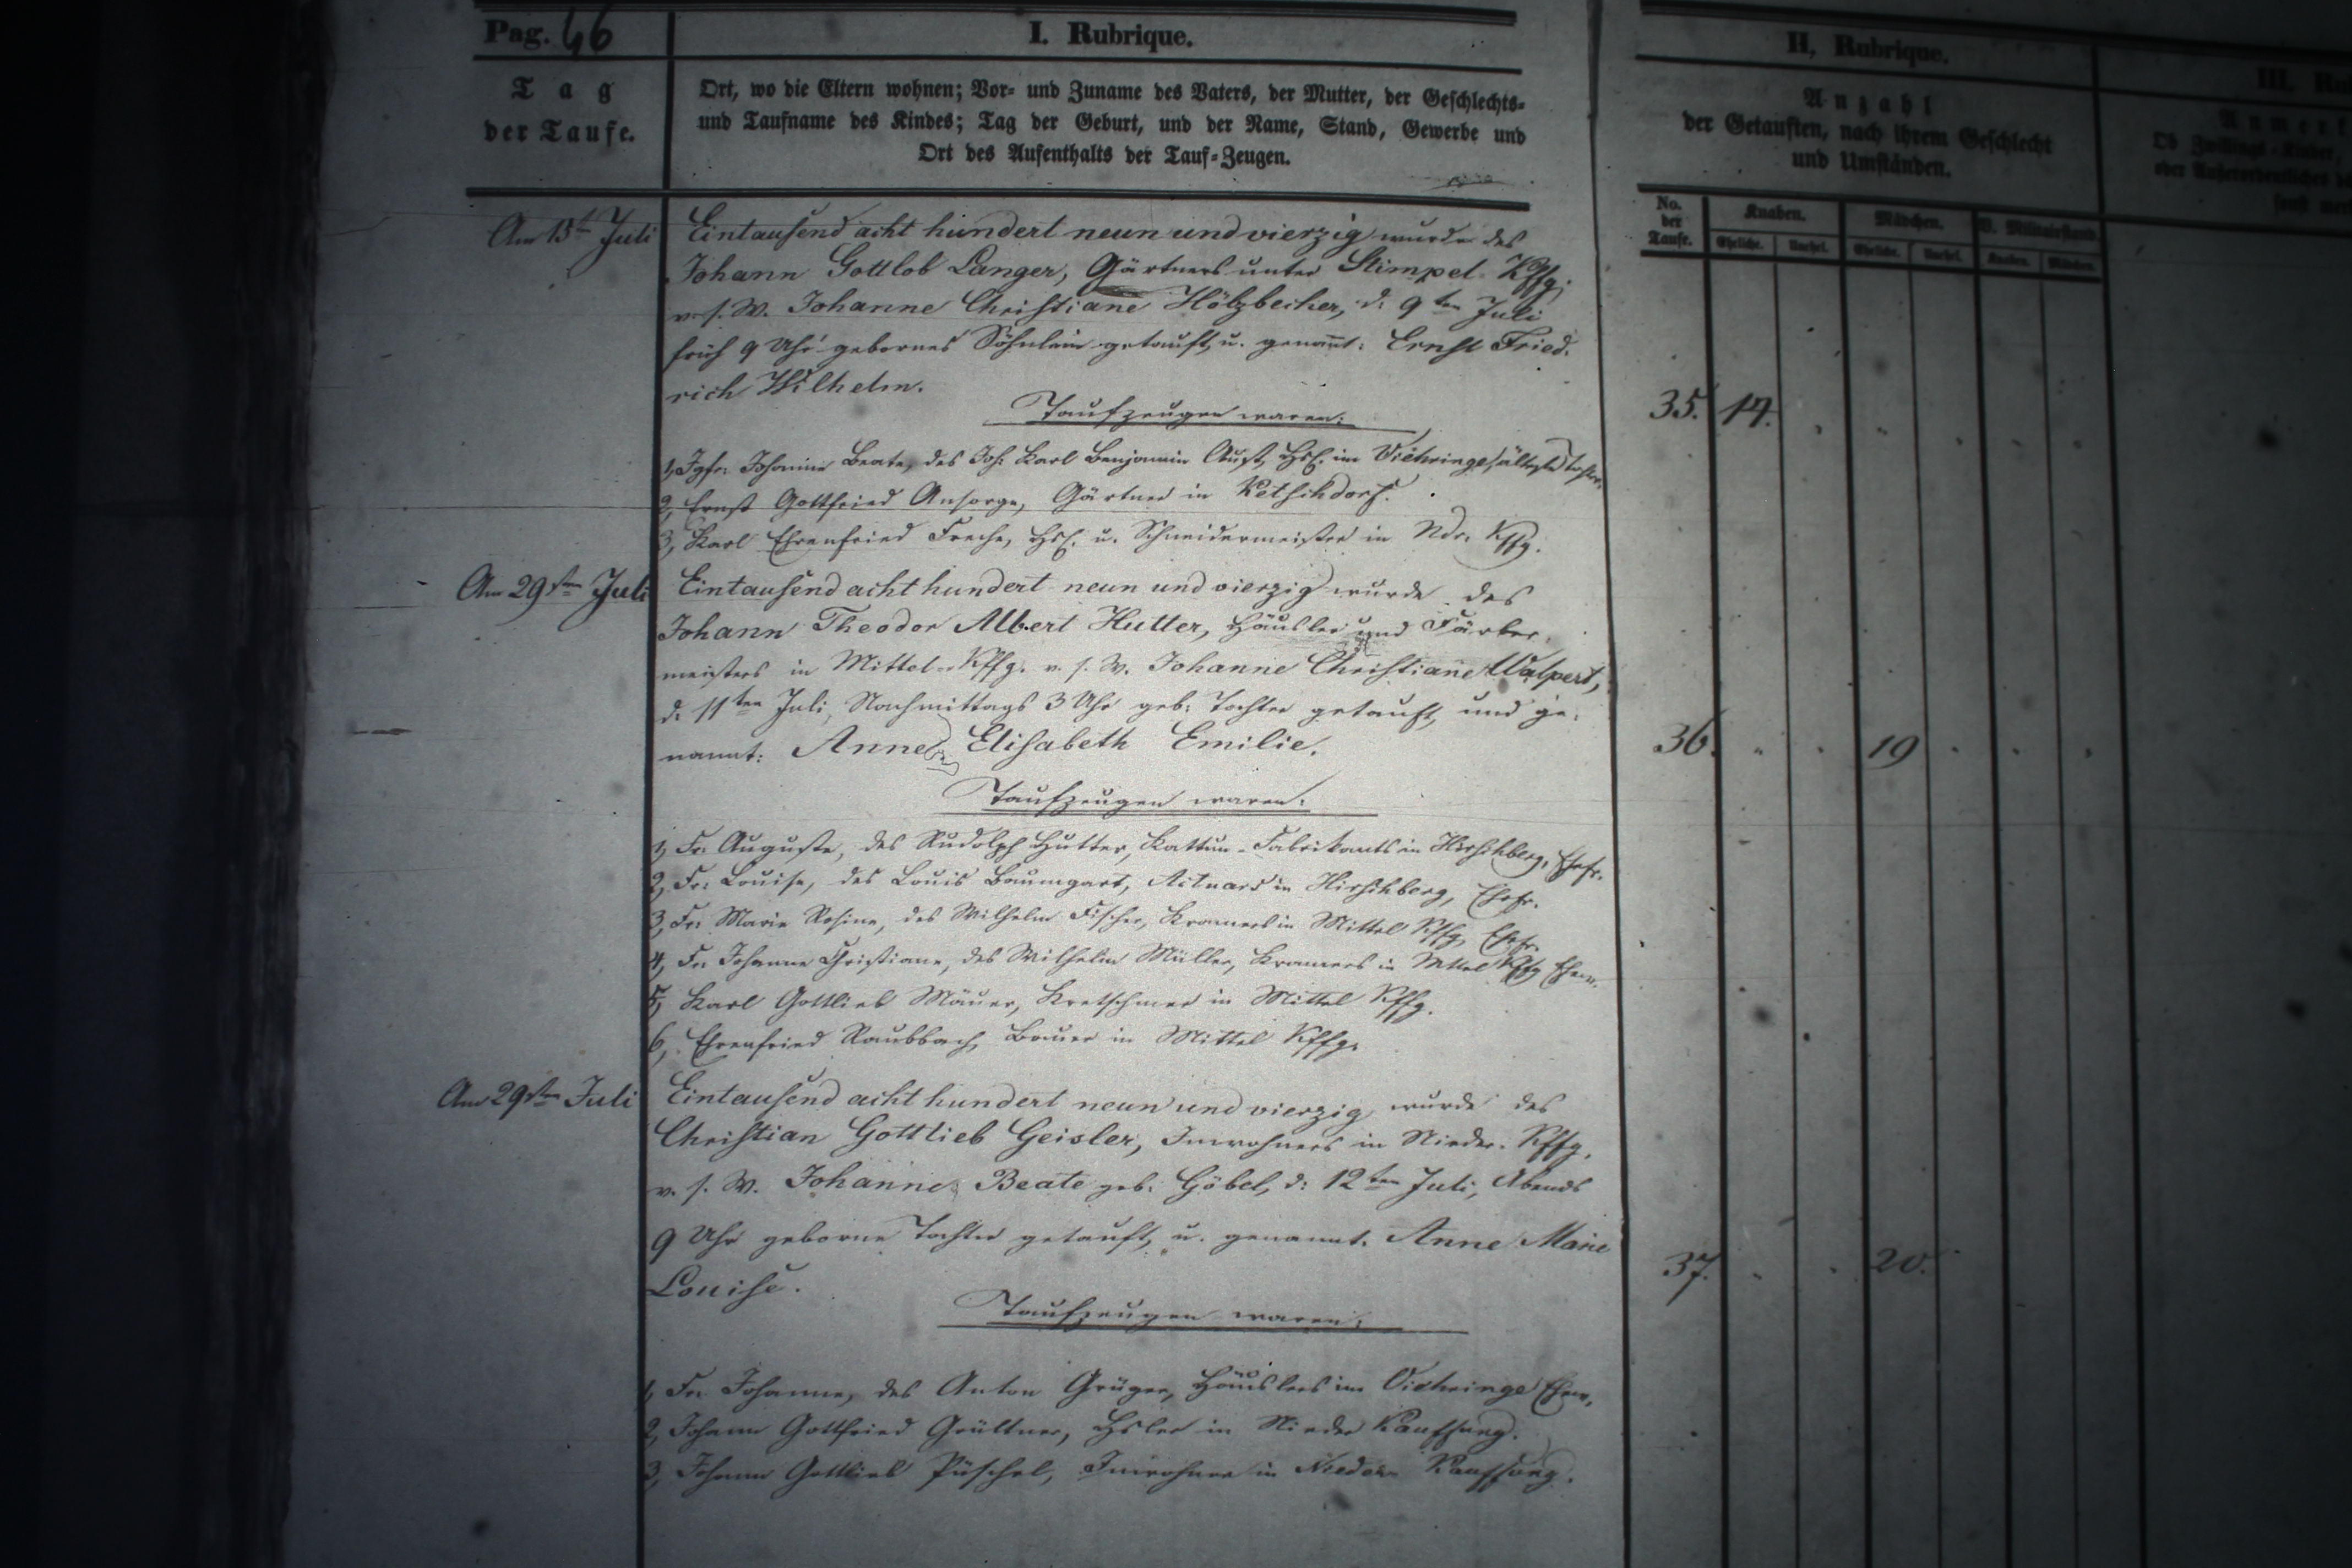 Pag. 46
I. Rubrique.
Tag
der Taufe.
Ort, wo die Eltern wohnen; Vor- und Zuname des Vaters, der Mutter, der Geschlechts-
und Taufname des Kindes; Tag der Geburt, und der Name, Stand, Gewerbe und
Ort des Aufenthalts der Tauf-Zeugen.
Am 15t Juli Eintausend acht hundert neun und vierzig wurde des
Johann Gottlob Langer, Gärtners unter Stimpel-Kffg.
v. s. W. Johanne Christiane Hölzbecher, d. 9ten Juli
früh 9 Uhr gebornes Söhnlein getauft u. genannt: Ernst Fried-
rich Wilhelm.
Taufzeugen waren:
1, Igfr. Johanne Beate, des Joh. Karl Benjamin Aust, Hsl. im Viehringe, älteste Tochter.
2, Ernst Gottfried Ansorge, Gärtner in Ketschdorf.
3, Karl Ehrenfried Freche, Hsl. u. Schneidermeister in Ndr. Kffg.
Am 29sten Juli Eintausend acht hundert neun und vierzig wurde des
Johann Theodor Albert Hutter, Häusler und Färber-
meisters in Mittel-Kffg. v. s. W. Johanne Christiane Walpert,
d. 11ten Juli, Nachmittags 3 Uhr geb. Tochter getauft und ge-
nannt: Anne Elisabeth Emilie.
Taufzeugen waren:
1, Fr. Auguste, des Rudolph Hutter, Kattun-Fabrikants in Hirschberg, Ehefr.
2, Fr. Louise, des Louis Baumgart, Actuars in Hirschberg, Ehefr.
3, Fr. Marie Rosine, des Wilhelm Fischer, Kramers in Mittel Kffg. Ehefr.
4, Fr. Johanne Christiane, des Wilhelm Müller, Kramers in Mittel Kffg
5, Karl Gottlieb Mäuer, Kretschmer in Mittel Kffg.
6, Ehrenfried Raubbach, Bauer in Mittel Kffg.
Am 29sten Juli Eintausend acht hundert neun und vierzig wurde des
Christian Gottlieb Geisler, Inwohners in Nieder-Kffg.
v. s. W. Johanne Beate geb. Göbel, d. 12ten Juli, Abends
9 Uhr geborne Tochter getauft u. genannt. Anne Marie
Louise.
Taufzeugen waren:
1, Fr. Johanne, des Anton Krüger, Häuslers im Viehringe
2, Johann Gottfried Grüttner, Hsler in Nieder Kauffung.
3, Johann Gottlieb Püschel, Inwohner in Nieder Kauffung.
II, Rubrique.
Anzahl
der Getauften, nach ihrem Geschlecht
und Umständen.
No.
der
Taufe.
Knaben. Mädchen. V. Militairstand.
Eheliche. Unehel. Eheliche. Unehel. Knaben. Mädchen.
35. 17.
36. 19
37. 20.
III. Ru
Anmer
Ob Zwillings-Kinder,
oder Außerordentliches